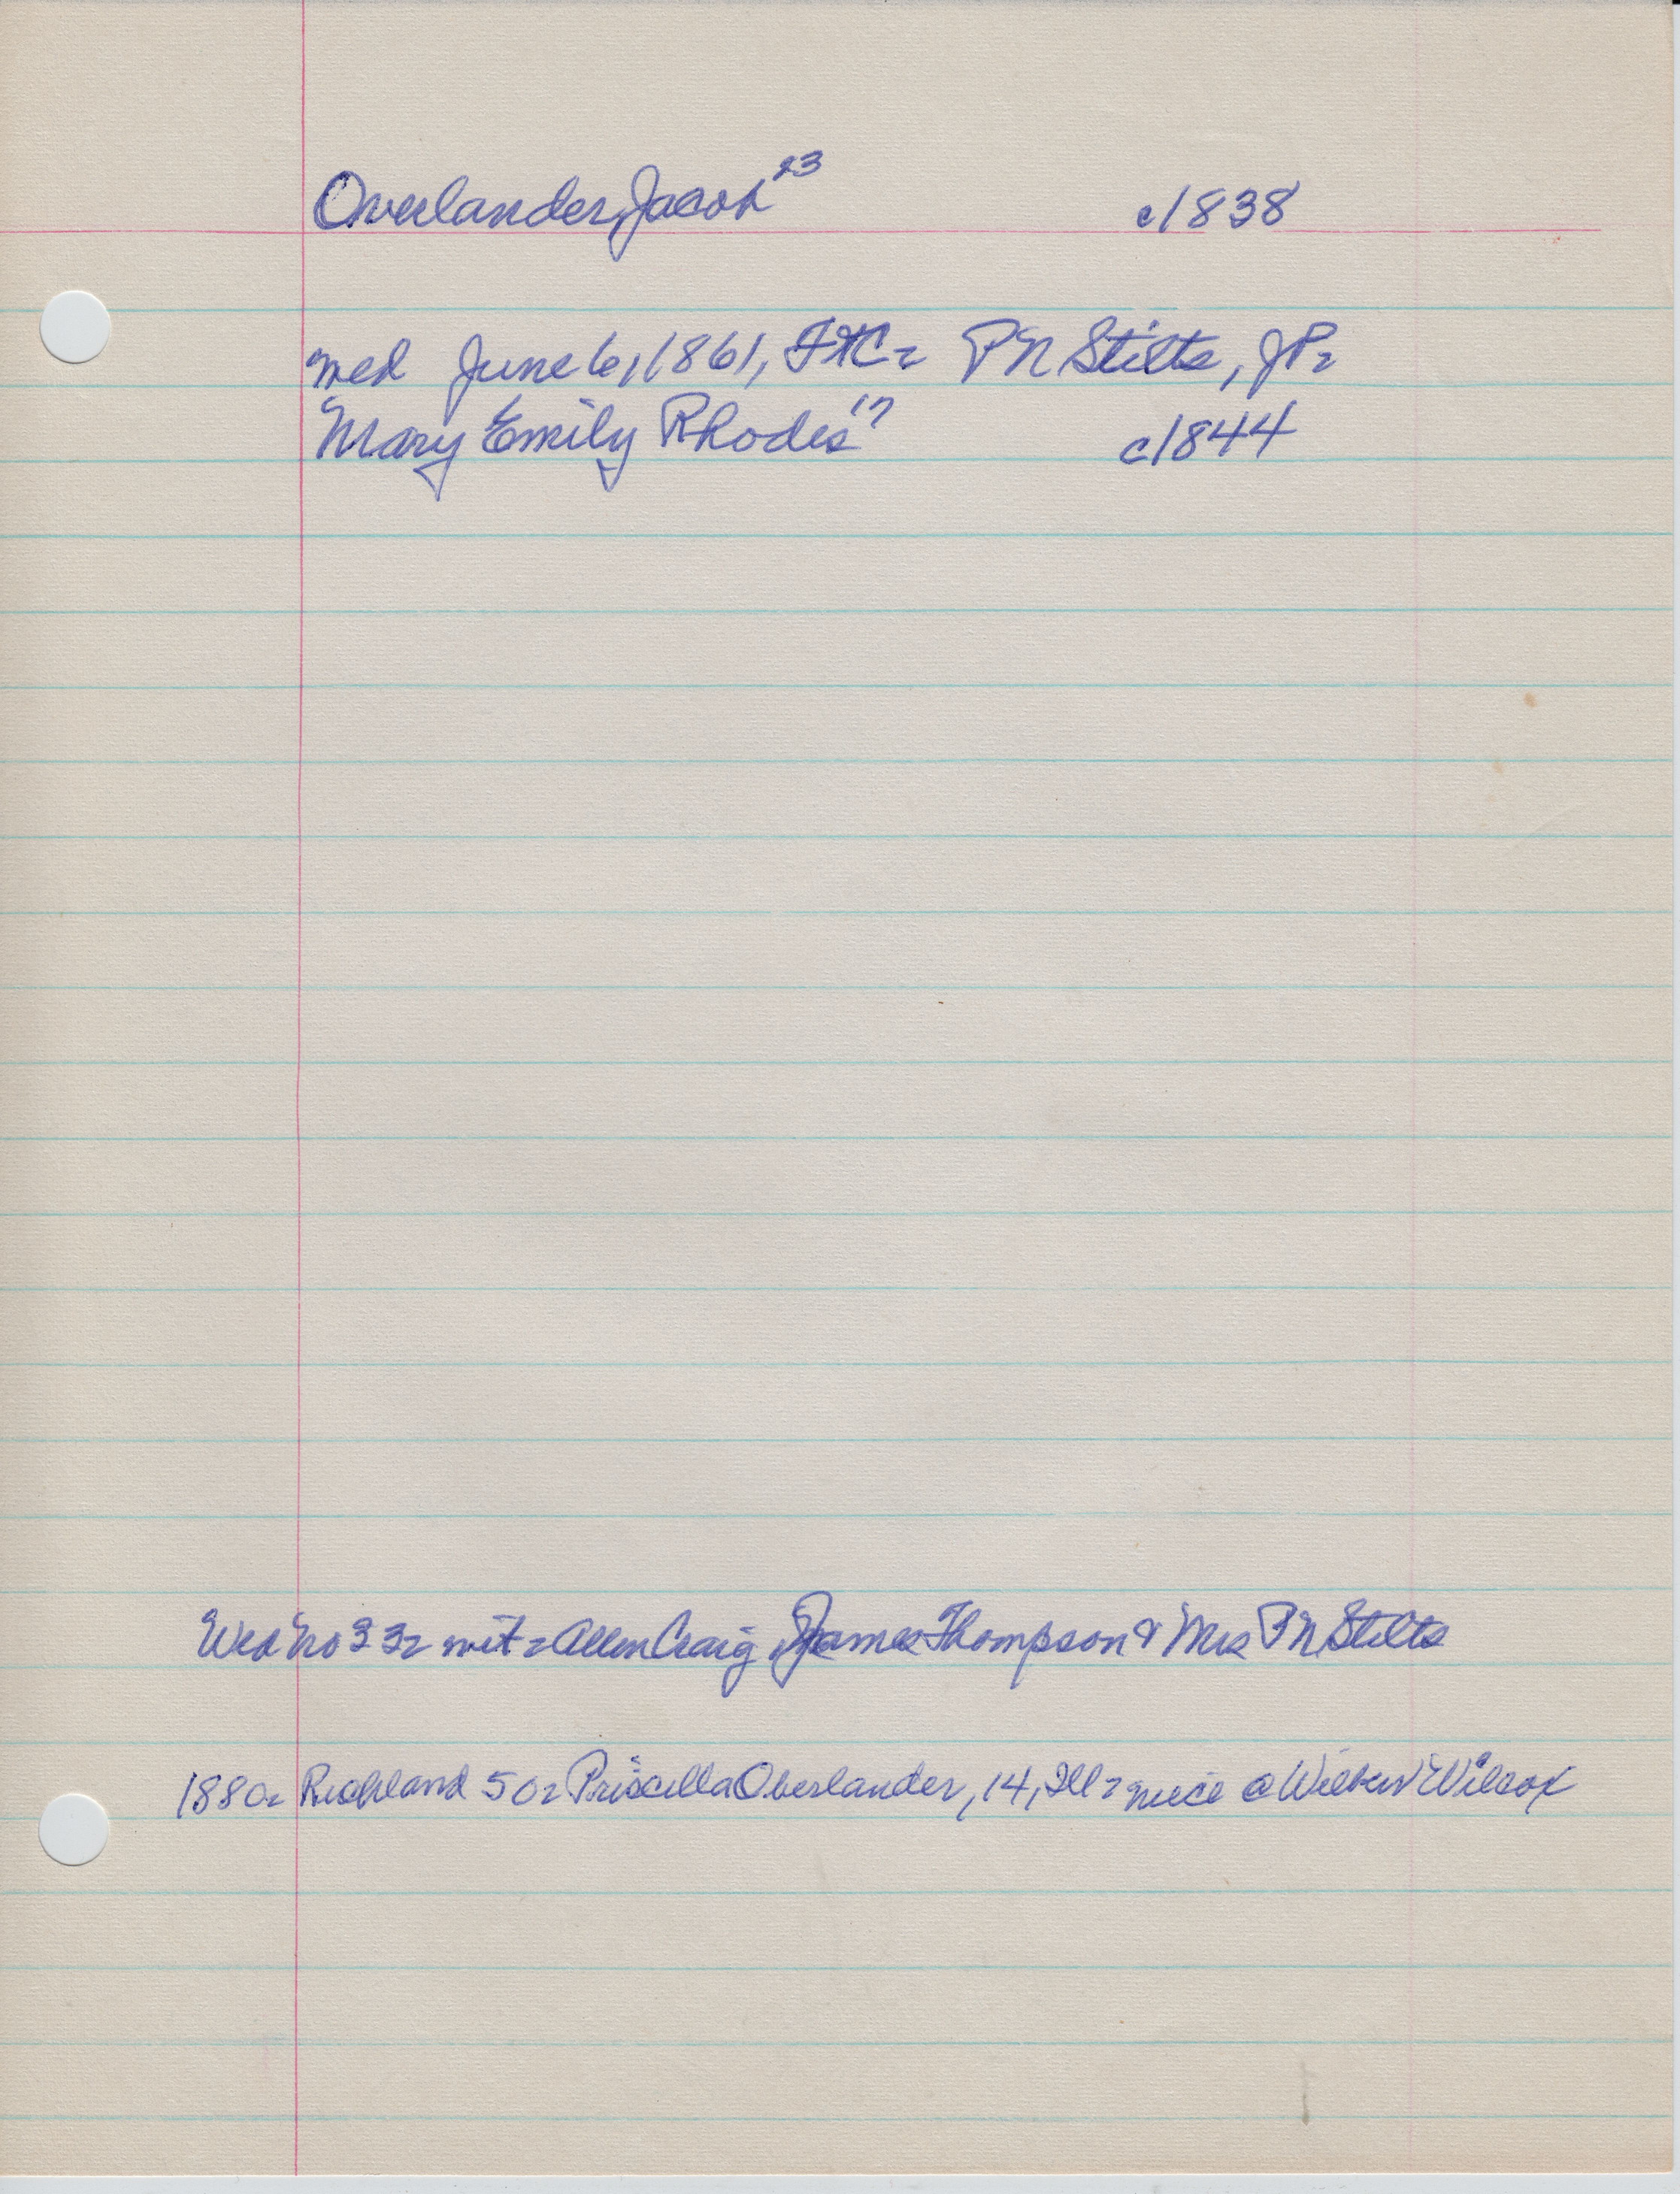 Overlander, Jacob 23 c1838
Wed June 6, 1861, = P N Stilts, JP =
Mary Emily Rhodes 17 c1844
Wed No 33 = wit = Allen Craig, James Thompson & Mrs P N Stilts
1880 = Richland 50 = Priscilla Oberlander, 14, Ill = niece @ Wilcox